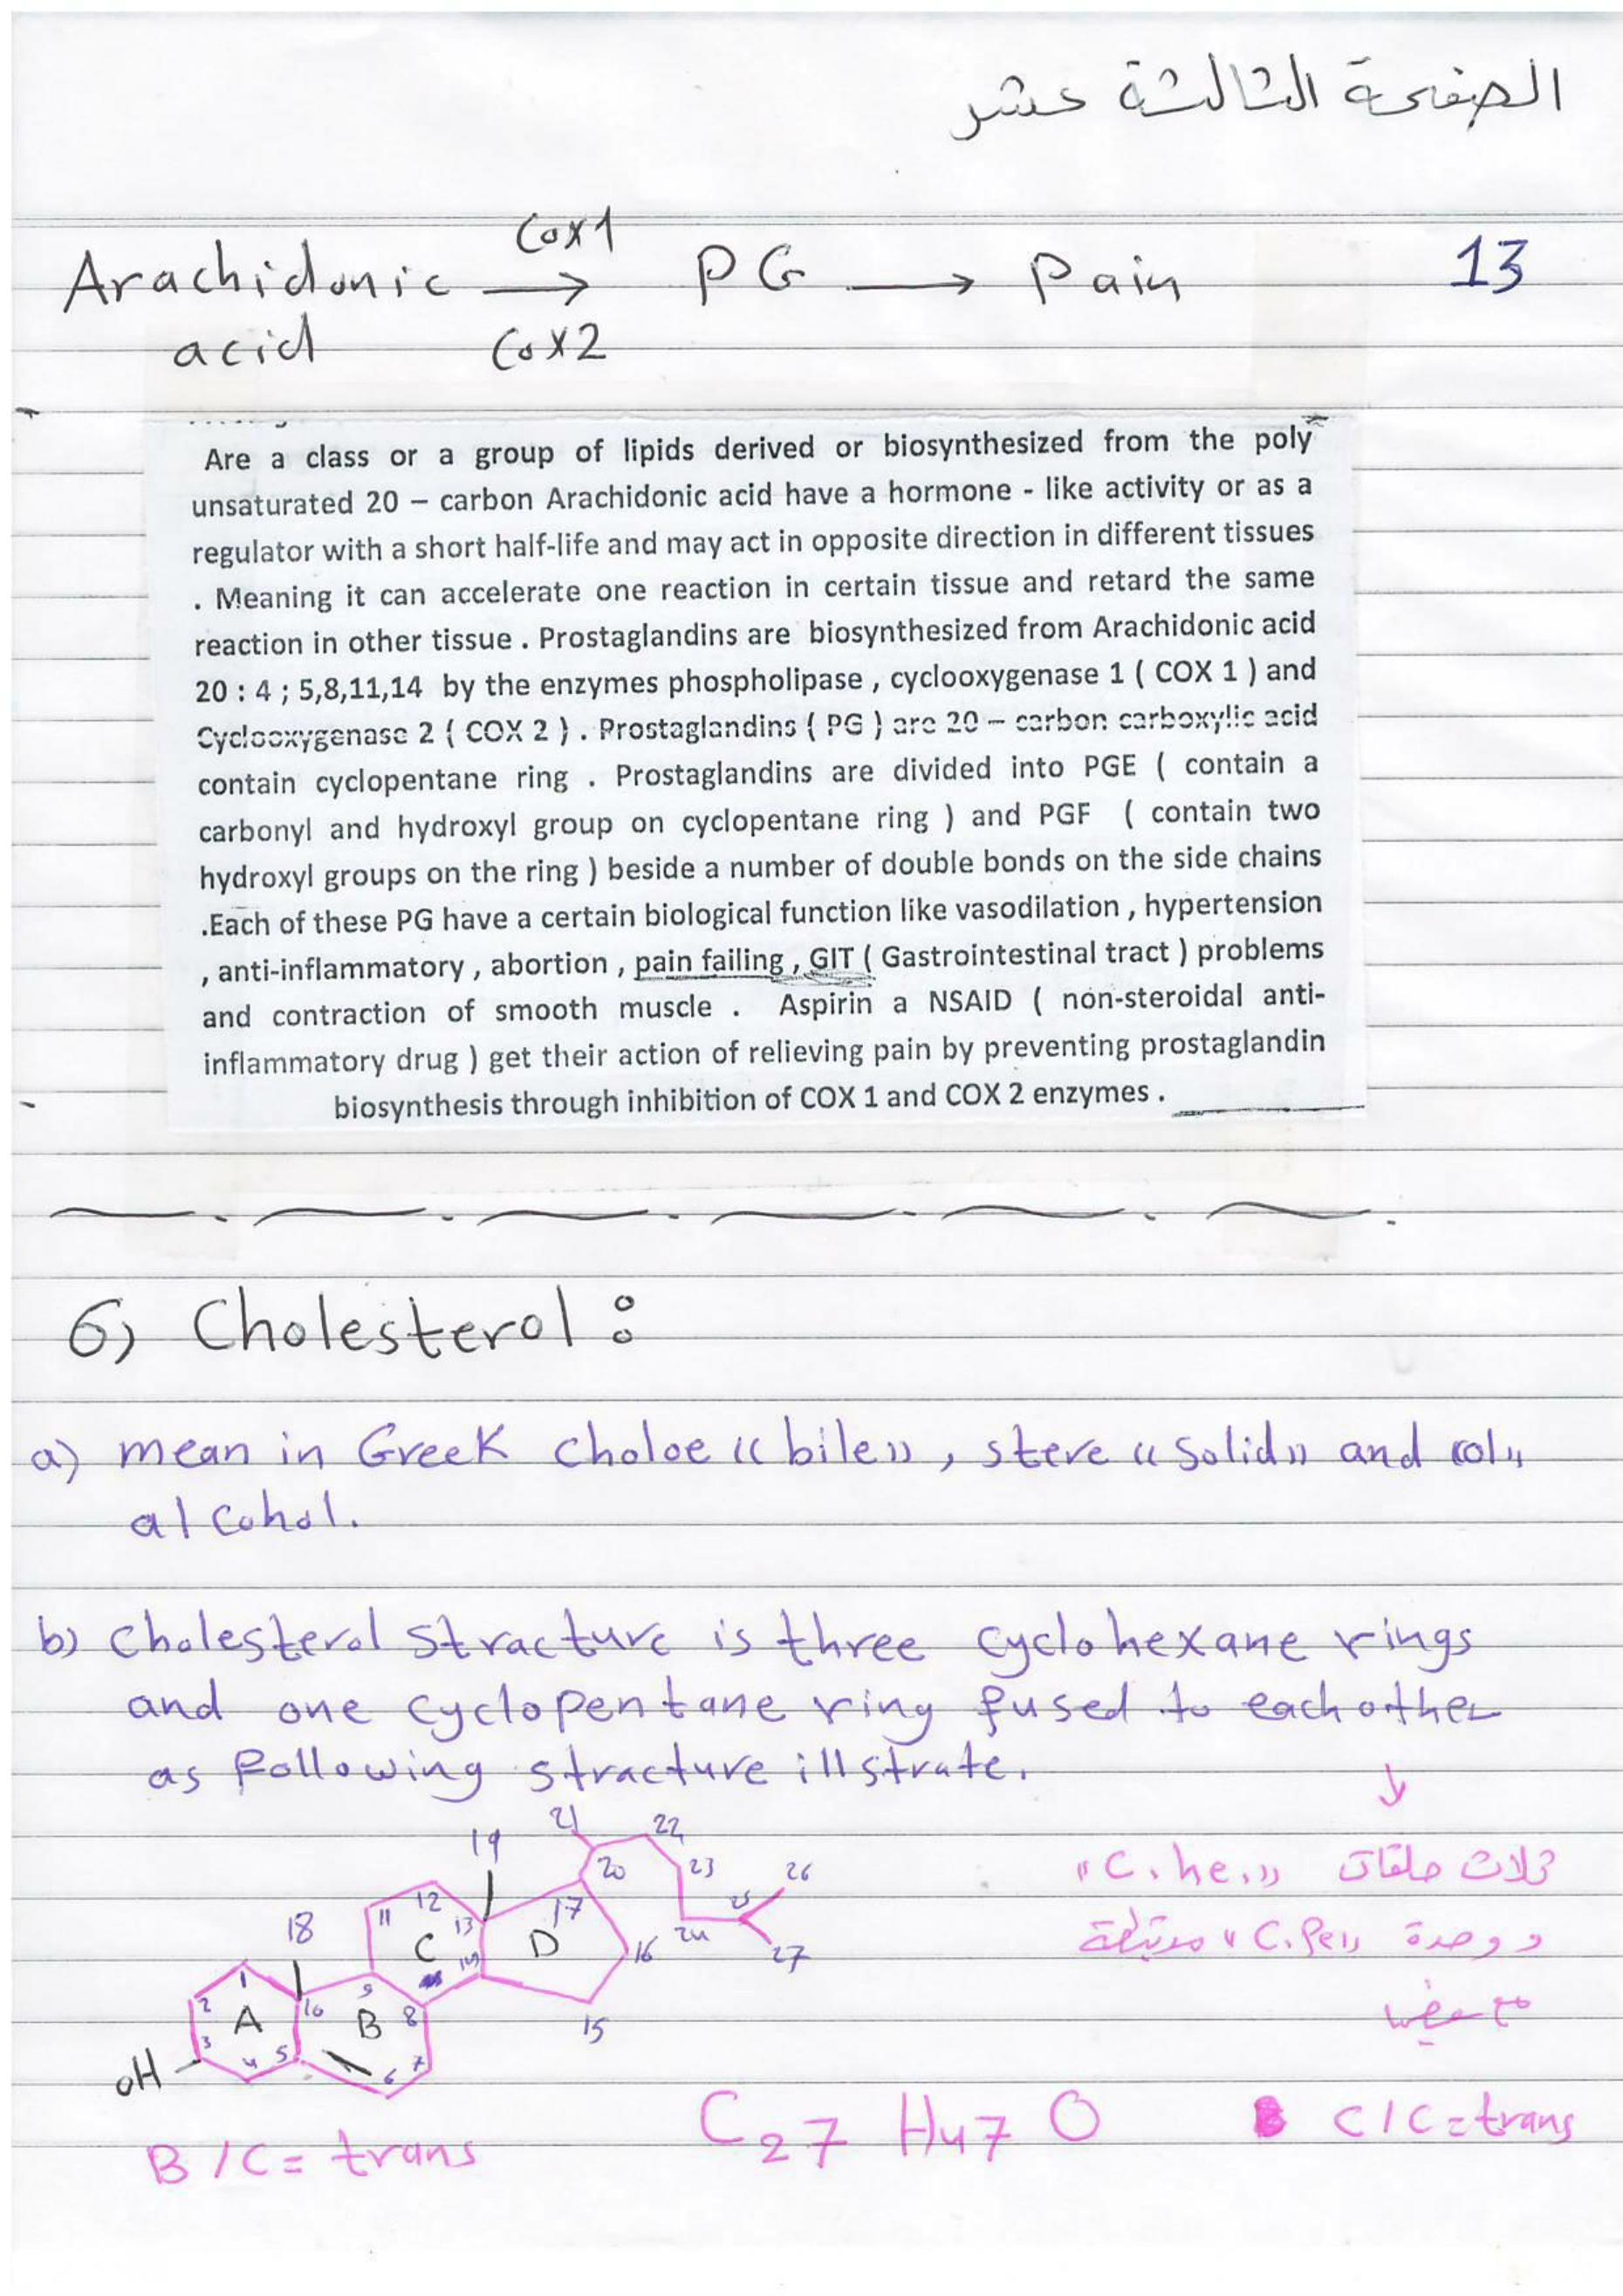 الصفحة الثالثة عشر
13
Cox1
Arachidonic → PG → Pain
acid Cox2
Are a class or a group of lipids derived or biosynthesized from the poly
unsaturated 20 – carbon Arachidonic acid have a hormone - like activity or as a
regulator with a short half-life and may act in opposite direction in different tissues
. Meaning it can accelerate one reaction in certain tissue and retard the same
reaction in other tissue . Prostaglandins are biosynthesized from Arachidonic acid
20 : 4 ; 5,8,11,14 by the enzymes phospholipase , cyclooxygenase 1 ( COX 1 ) and
Cyclooxygenase 2 ( COX 2 ) . Prostaglandins ( PG ) are 20 – carbon carboxylic acid
contain cyclopentane ring . Prostaglandins are divided into PGE ( contain a
carbonyl and hydroxyl group on cyclopentane ring ) and PGF ( contain two
hydroxyl groups on the ring ) beside a number of double bonds on the side chains
.Each of these PG have a certain biological function like vasodilation , hypertension
, anti-inflammatory , abortion , pain failing , GIT ( Gastrointestinal tract ) problems
and contraction of smooth muscle . Aspirin a NSAID ( non-steroidal anti-
inflammatory drug ) get their action of relieving pain by preventing prostaglandin
biosynthesis through inhibition of COX 1 and COX 2 enzymes .
6) Cholesterol :
a) mean in Greek choloe "bile", stere "solid" and "ol"
alcohol.
b) cholesterol stracture is three cyclohexane rings
and one cyclopentane ring fused to each other
as following stracture illstrate.
ثلاث حلقات "C.he."
ووحدة "C.Pe" مرتبطة
مع بعضها
21 22
19 20 23 26
12 17 25
18 11 13
C 14 D 16 24 27
1 9
2 A 10 B 8 15
3 4 5 6 7
OH
C27 H47 O
C/C = trans
B/C = trans